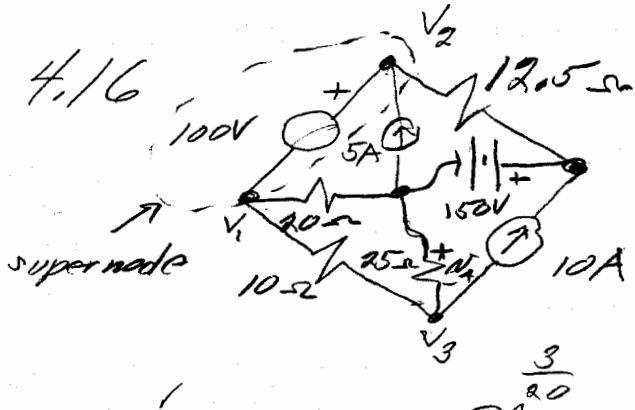 4.16
V2
12.5 Ω
100V
+
5A
150V
+
V1
20Ω
supernode
10Ω
25Ω
+
-
10A
V3
3
20